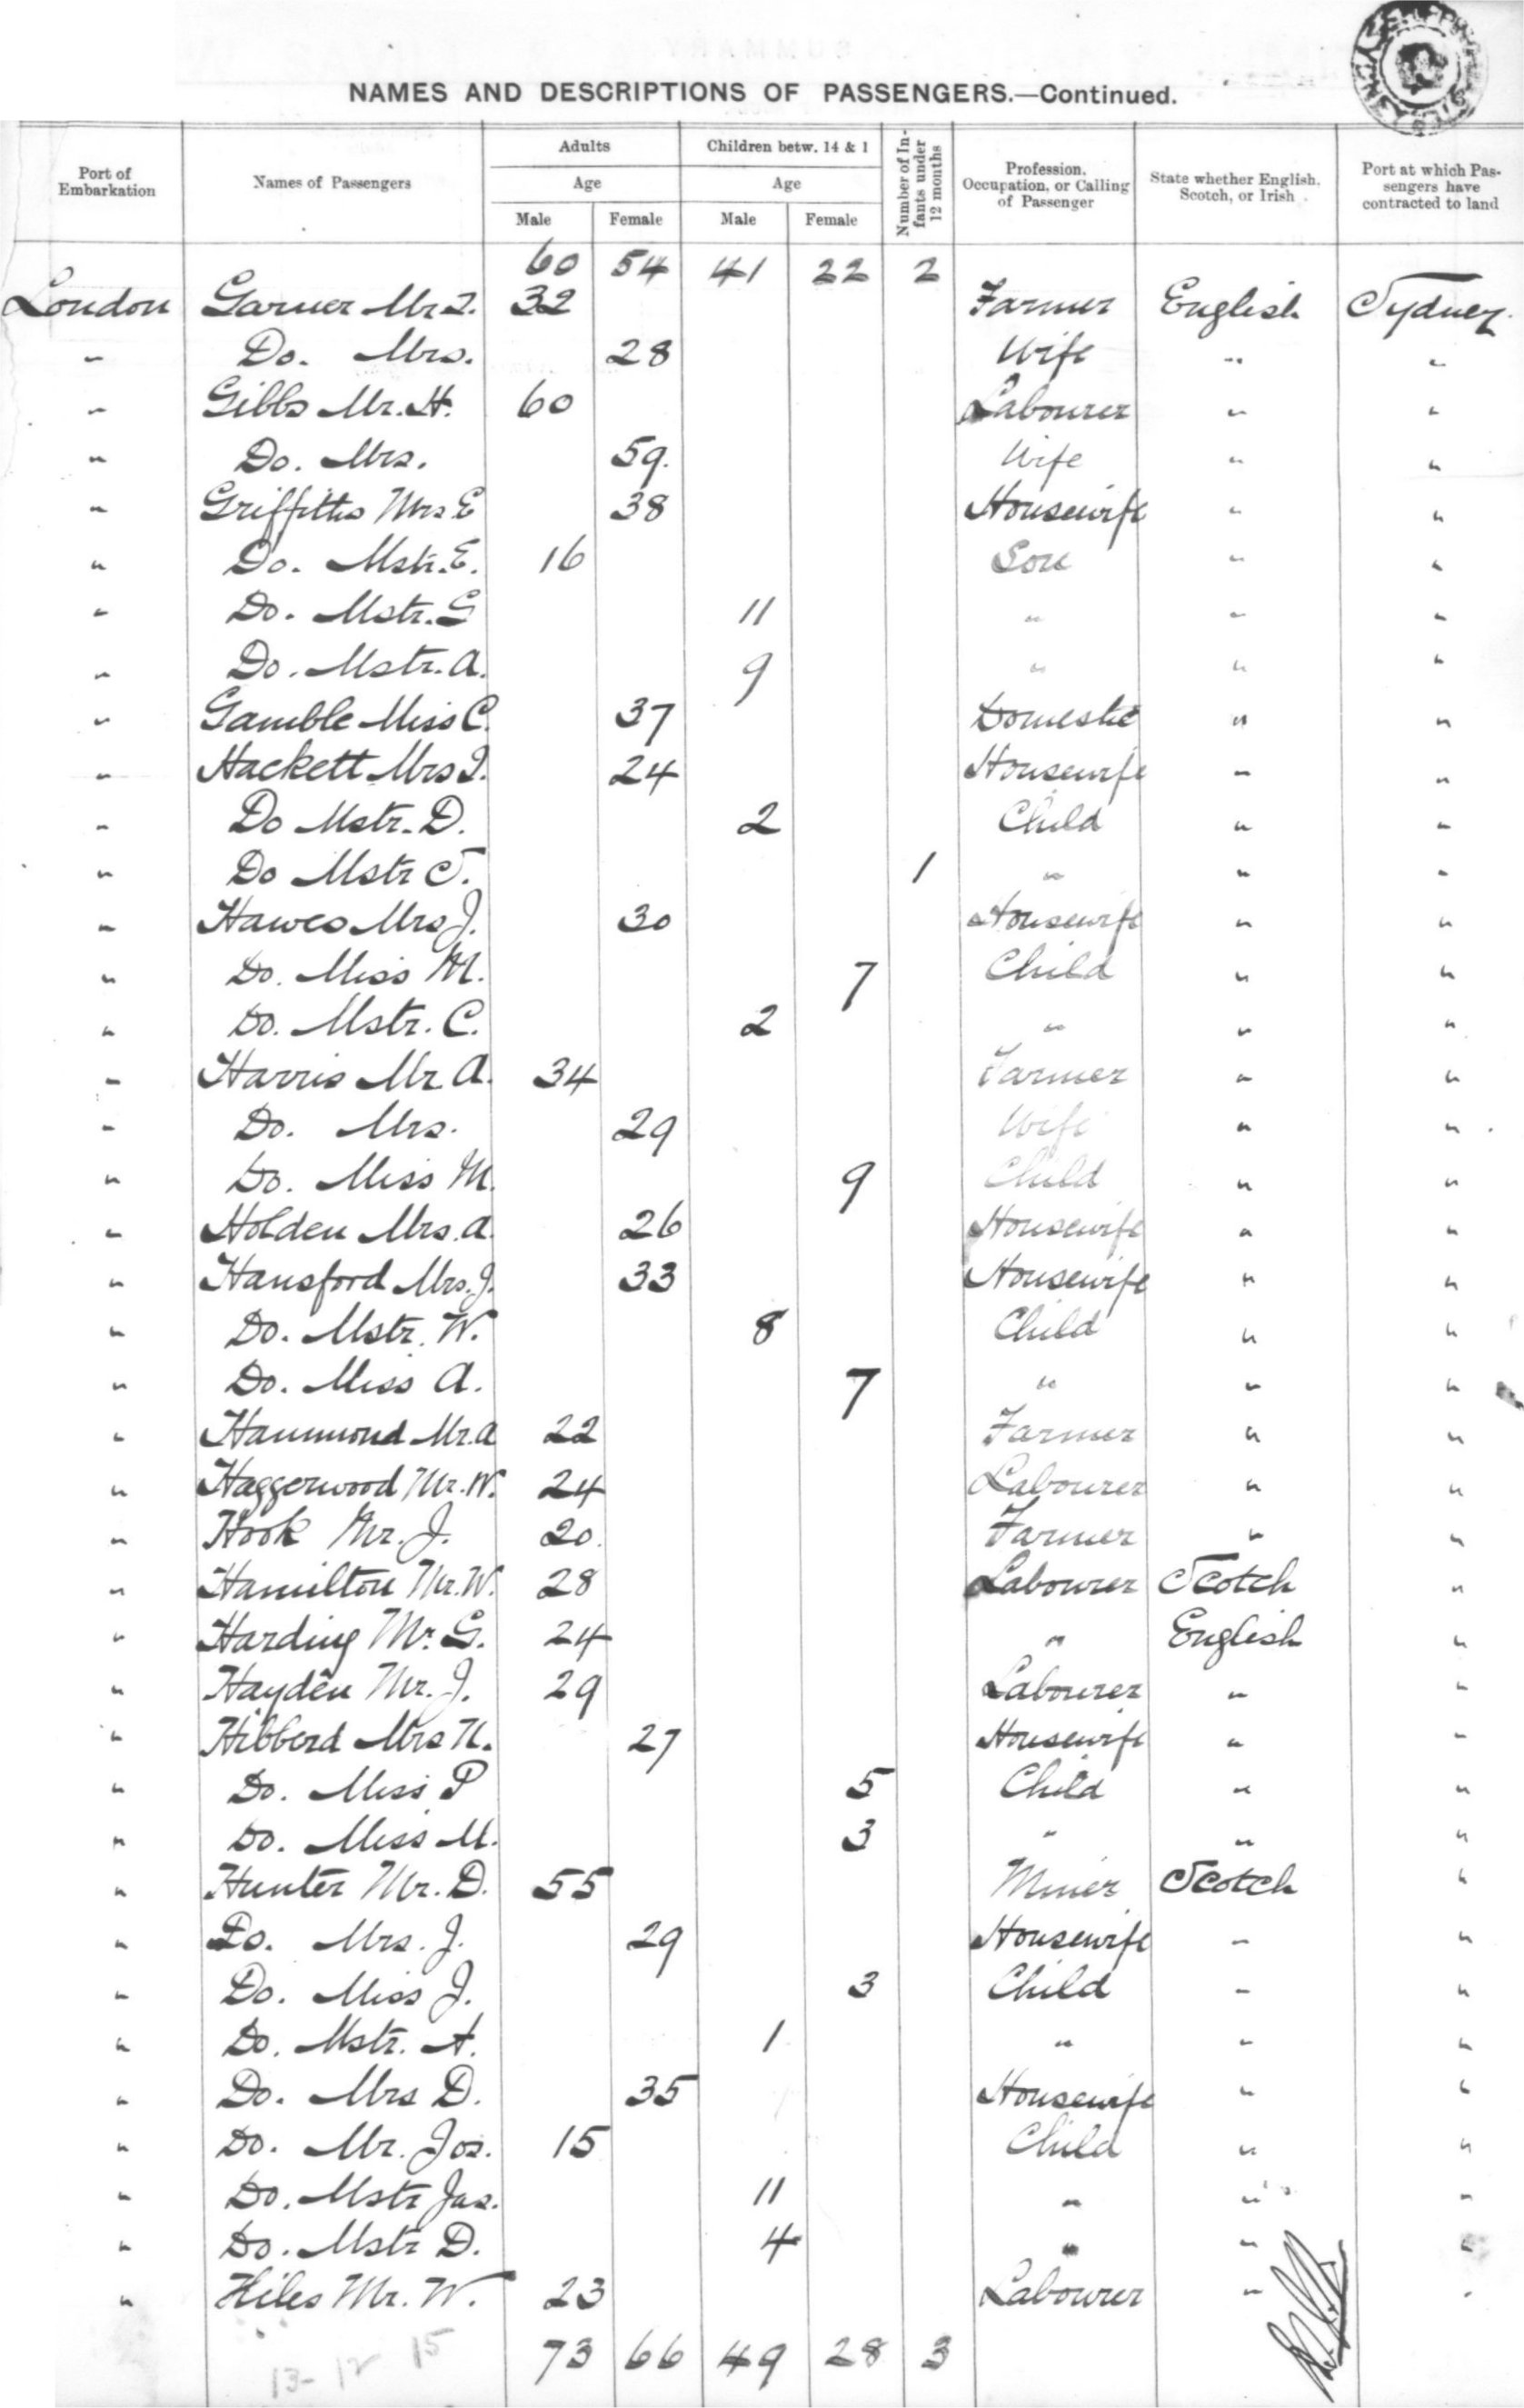 NAMES AND DESCRIPTIONS OF PASSENGERS.—Continued.
Port of Embarkation Names of Passengers Adults Age Male Female Children betw. 14 & 1 Age Male Female Number of Infants under 12 months Profession, Occupation, or Calling of Passenger State whether English, Scotch, or Irish Port at which Passengers have contracted to land
60 54 41 22 2
London Garner Mr. 32 Farmer English Sydney.
" Do. Mrs. 28 Wife " "
" Gibbs Mr. H. 60 Labourer " "
" Do. Mrs. 59. Wife " "
" Griffiths Mrs E 38 Housewife " "
" Do. Mstr. E. 16 Son " "
" Do. Mstr. G 11 " " "
" Do. Mstr. A. 9 " " "
" Gamble Miss C. 37 Domestic " "
" Hackett Mrs I. 24 Housewife " "
" Do Mstr. D. 2 Child " "
" Do Mstr S. 1 " " "
" Hawes Mrs J. 30 Housewife " "
" Do. Miss M. 7 Child " "
" Do. Mstr. C. 2 " " "
" Harris Mr A. 34 Farmer " "
" Do. Mrs. 29 Wife " "
" Do. Miss M. 9 Child " "
" Holden Mrs. A. 26 Housewife " "
" Hansford Mrs. J. 33 Housewife " "
" Do. Mstr. W. 8 Child " "
" Do. Miss A. 7 " " "
" Hammond Mr. A 22 Farmer " "
" Haggerwood Mr. W. 24 Labourer " "
" Hook Mr. J. 20. Farmer " "
" Hamilton Mr. W. 28 Labourer Scotch "
" Harding Mr G. 24 " English "
" Hayden Mr. J. 29 Labourer " "
" Hibberd Mrs N. 27 Housewife " "
" Do. Miss P 5 Child " "
" Do. Miss M. 3 " " "
" Hunter Mr. D. 55 Miner Scotch "
" Do. Mrs. J. 29 Housewife " "
" Do. Miss J. 3 Child " "
" Do. Mstr. A. 1 " " "
" Do. Mrs D. 35 Housewife " "
" Do. Mr. Jos. 15 Child " "
" Do. Mstr Jas. 11 " " "
" Do. Mstr D. 4 " " "
" Hiles Mr. W. 23 Labourer " "
73 66 49 28 3
13- 12 15